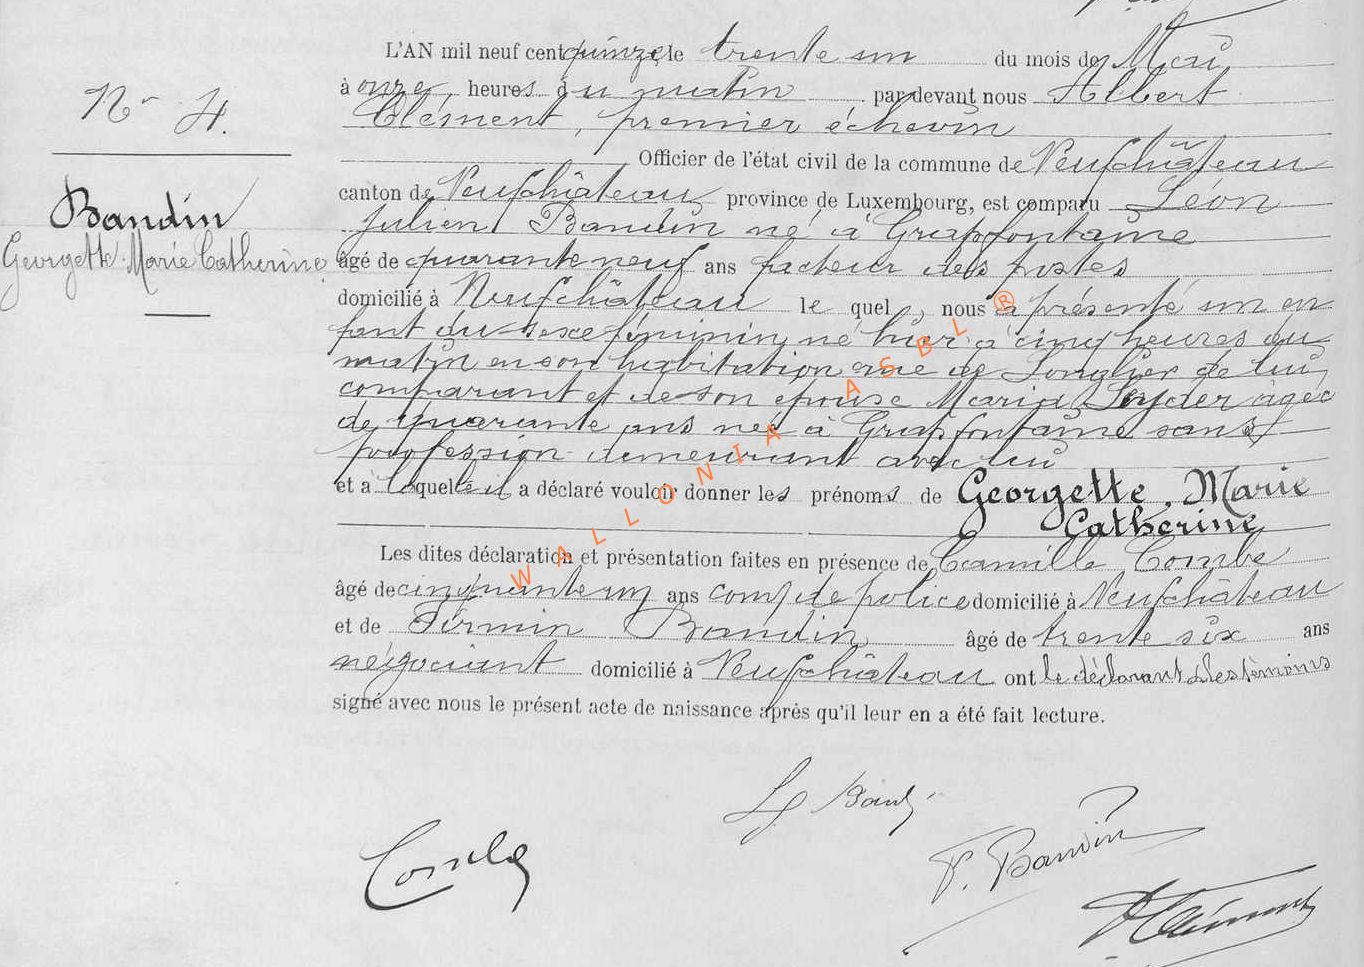 L'AN mil neuf cent quinze, le trente un du mois de Mai
à onze heures du matin par devant nous Albert
Clément, premier échevin
Officier de l'état civil de la commune de Neufchâteau
canton de Neufchâteau province de Luxembourg, est comparu Léon
Julien Baudin né à Grapfontaine
âgé de quarante neuf ans facteur des postes
domicilié à Neufchâteau le quel, nous a présenté un en
fant du sexe féminin né hier à cinq heures du
matin en son habitation rue de Longlier de lui
comparant et de son épouse Maria âgée
de quarante ans née à Grapfontaine sans
profession demeurant avec lui
et à laquelle il a déclaré vouloir donner les prénoms de Georgette, Marie
Catherine
Les dites déclaration et présentation faites en présence de Camille Combe
âgé de cinquante un ans comm de police domicilié à Neufchâteau
et de Firmin Baudin âgé de trente six ans
négociant domicilié à Neufchâteau ont le déclarant & les témoins
signé avec nous le présent acte de naissance après qu'il leur en a été fait lecture.
Nr 4.
Baudin
Georgette Marie Catherine
WALLONIA ASBL ®
Combe
F. Baudin
A Clément